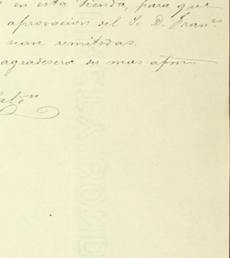 en esta tienda, para que
aprovacion del S. D. Fran.co
sean remitidas.
agradecera su mas afmo